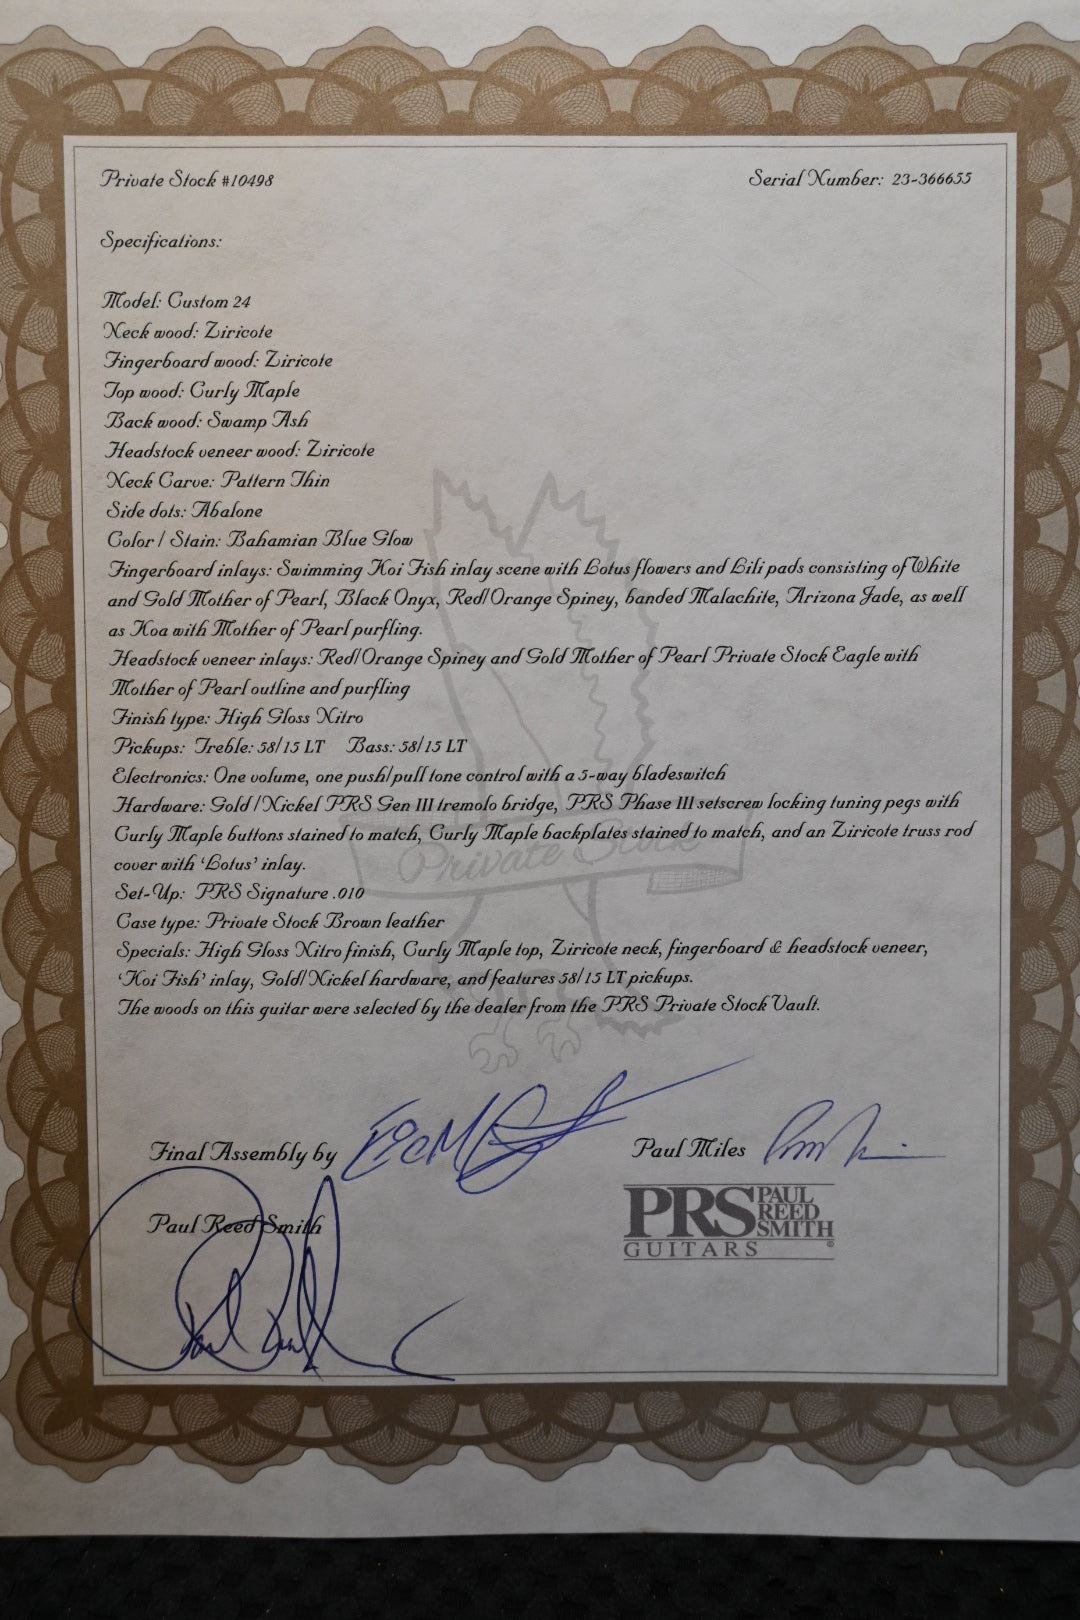 Private Stock #10498
Serial Number: 23-366655
Specifications:
Model: Custom 24
Neck wood: Ziricote
Fingerboard wood: Ziricote
Top wood: Curly Maple
Back wood: Swamp Ash
Headstock veneer wood: Ziricote
Neck Carve: Pattern Thin
Side dots: Abalone
Color / Stain: Bahamian Blue Glow
Fingerboard inlays: Swimming Koi Fish inlay scene with Lotus flowers and Lili pads consisting of White
and Gold Mother of Pearl, Black Onyx, Red/Orange Spiney, banded Malachite, Arizona Jade, as well
as Koa with Mother of Pearl purfling.
Headstock veneer inlays: Red/Orange Spiney and Gold Mother of Pearl Private Stock Eagle with
Mother of Pearl outline and purfling
Finish type: High Gloss Nitro
Pickups: Treble: 58/15 LT Bass: 58/15 LT
Electronics: One volume, one push/pull tone control with a 5-way bladeswitch
Hardware: Gold / Nickel PRS Gen III tremolo bridge, PRS Phase III setscrew locking tuning pegs with
Curly Maple buttons stained to match, Curly Maple backplates stained to match, and an Ziricote truss rod
cover with ‘Lotus’ inlay.
Private Stock
Set-Up: PRS Signature .010
Case type: Private Stock Brown leather
Specials: High Gloss Nitro finish, Curly Maple top, Ziricote neck, fingerboard & headstock veneer,
‘Koi Fish’ inlay, Gold/Nickel hardware, and features 58/15 LT pickups.
The woods on this guitar were selected by the dealer from the PRS Private Stock Vault.
Final Assembly by
Paul Miles
Paul Reed Smith
PRS PAUL REED SMITH
GUITARS